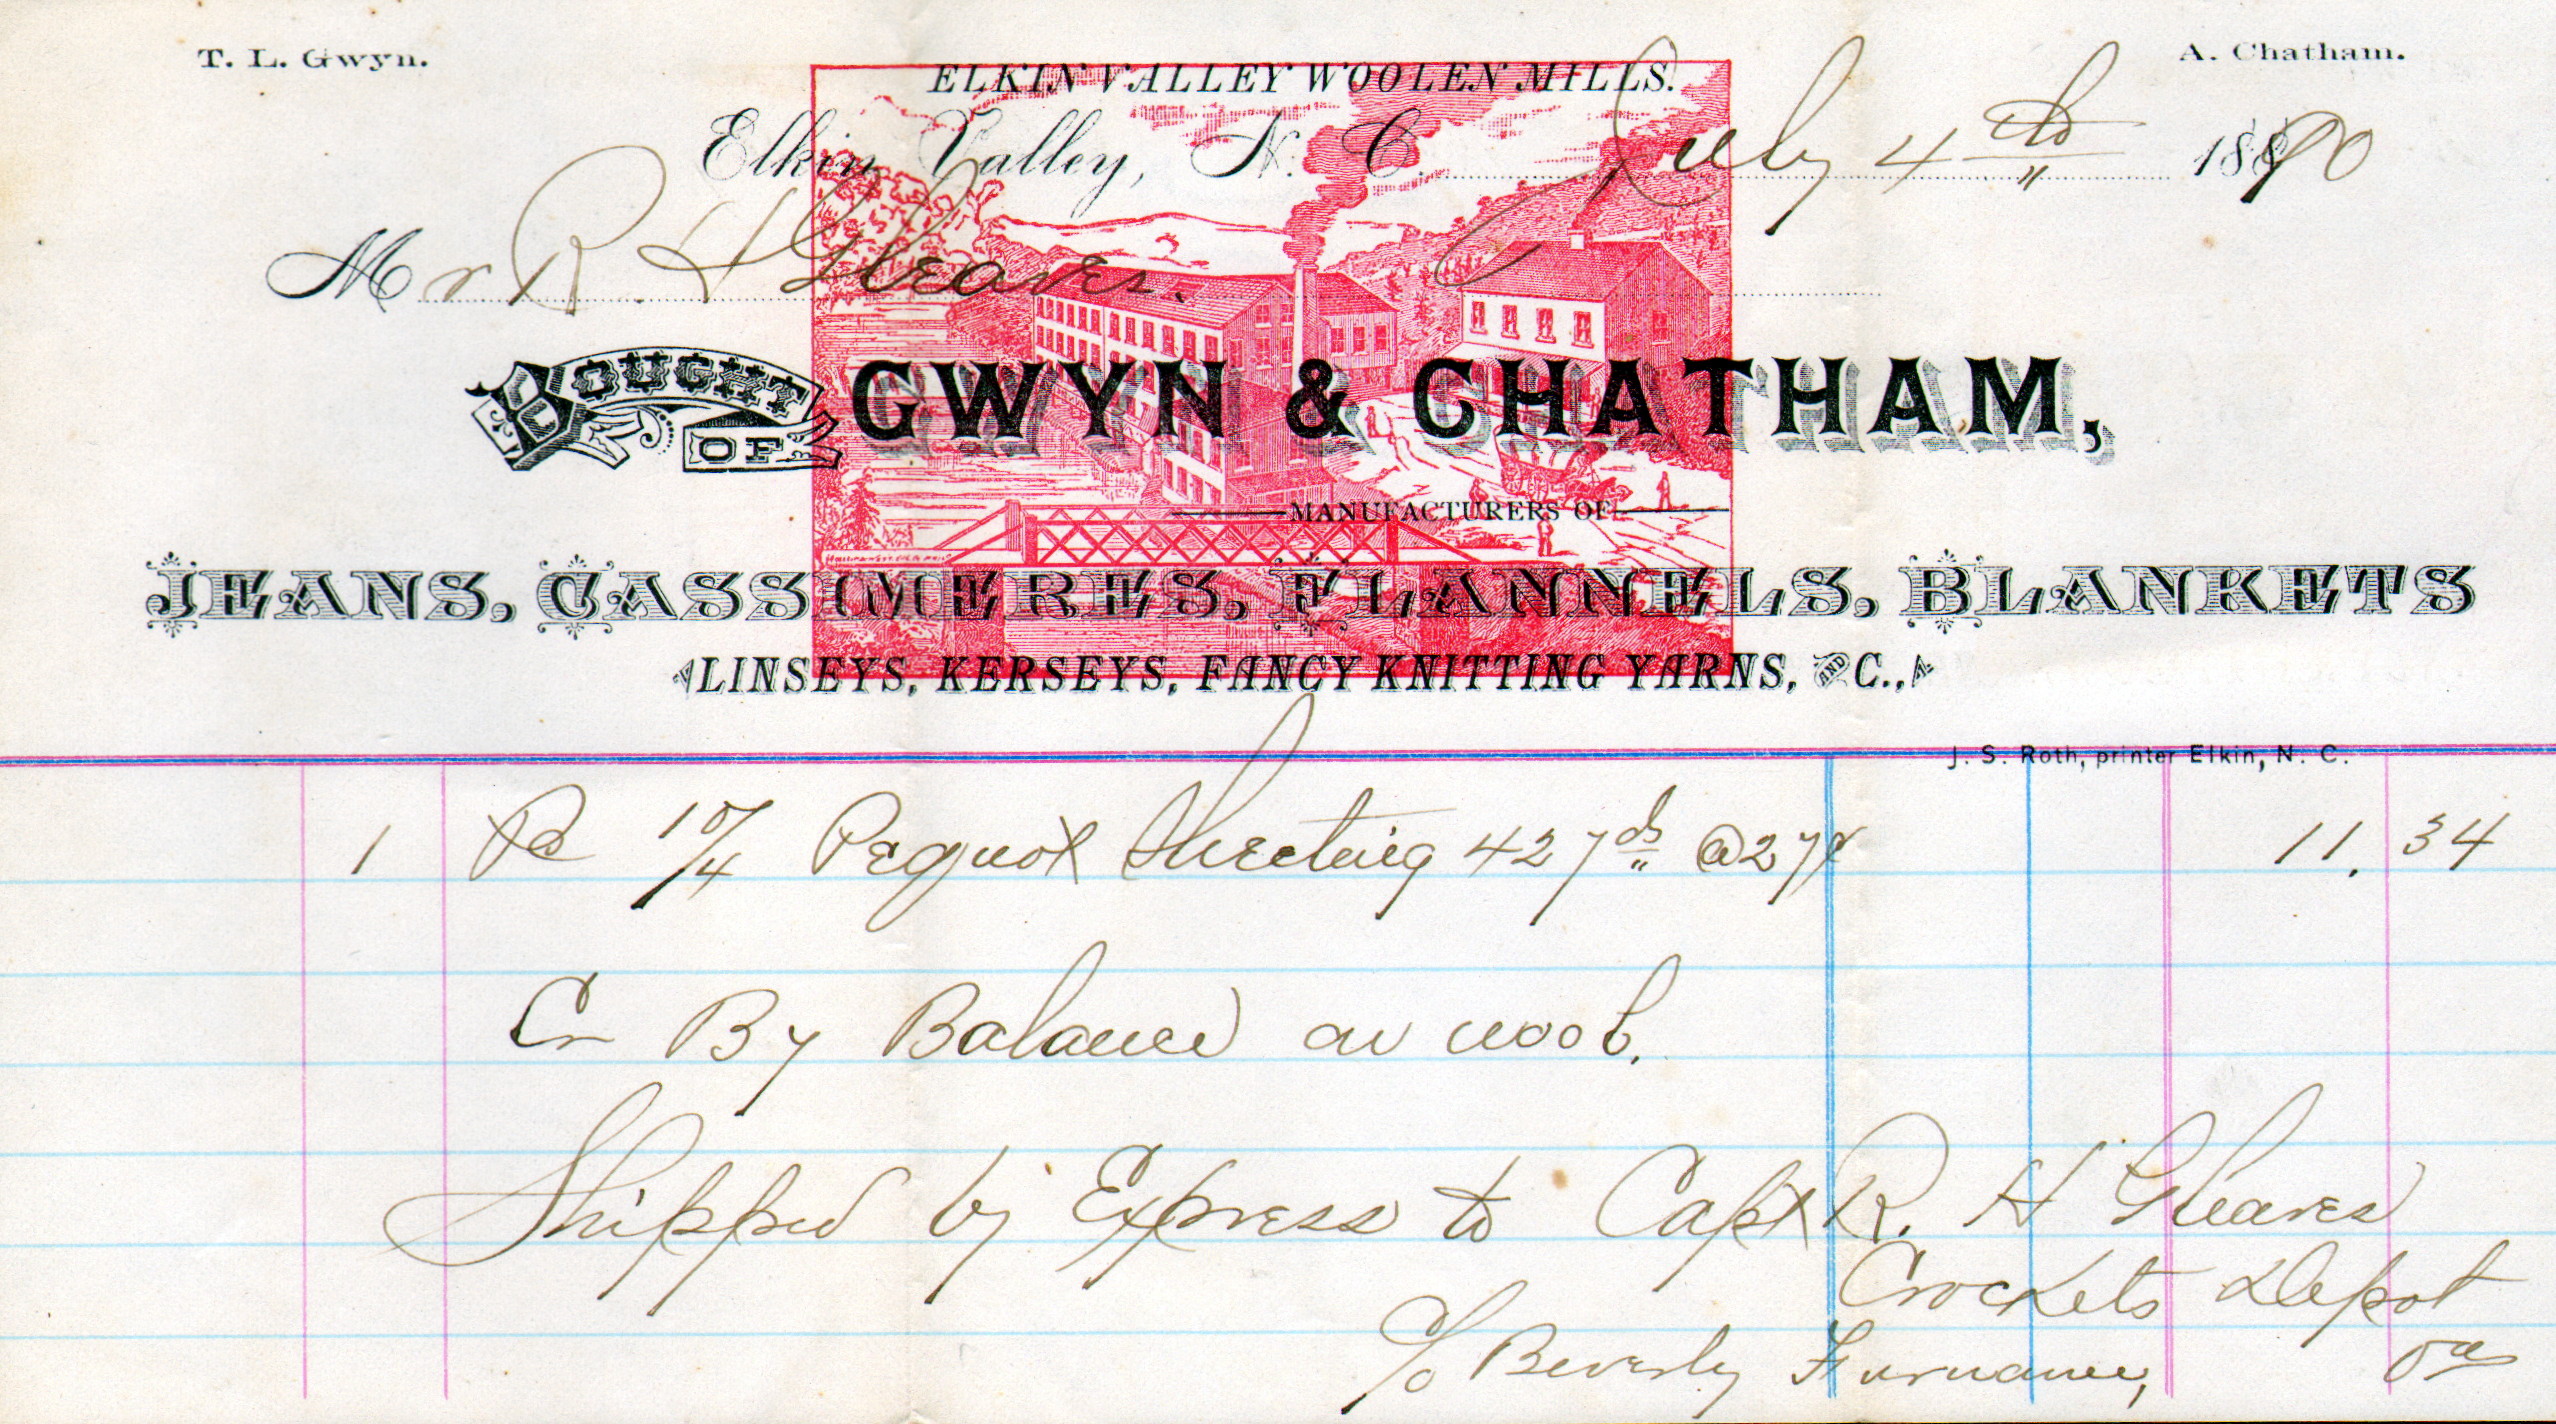 T. L. Gwyn. A. Chatham.
ELKIN VALLEY WOOLEN MILLS.
Elkin Valley, N. C. July 4th 1890
Mr R. H Gleaves.
BOUGHT OF GWYN & CHATHAM,
MANUFACTURERS OF
JEANS, CASSIMERES, FLANNELS, BLANKETS
LINSEYS, KERSEYS, FANCY KNITTING YARNS, AND C.,
J. S. Roth, printer Elkin, N. C.
1 Pc 10/4 Pequot Sheeting 42 yds @ 27¢ 11.34
Cr By Balance on wool.
Shipped by Express to Capt R. H Gleaves
Crockets Depot
c/o Beverly Furnace, Va